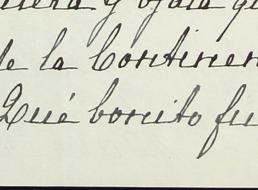 y ojalá qu
de la Continen
Qué bonito fu